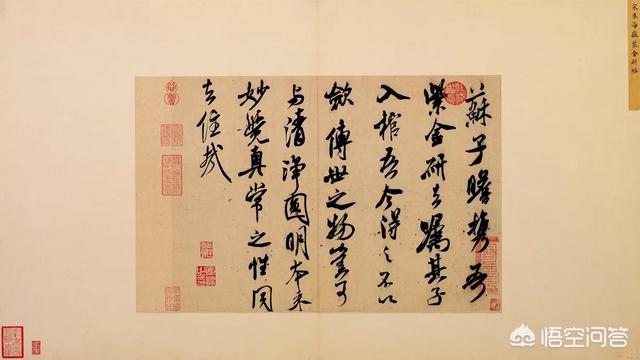 宋米海嶽紫金研帖
蘇子瞻携吾
紫金研去嘱其子
入棺吾今得之不以
歛傳世之物豈可
与清淨圓明本来
妙覺真常之性同
去住哉
悟空问答